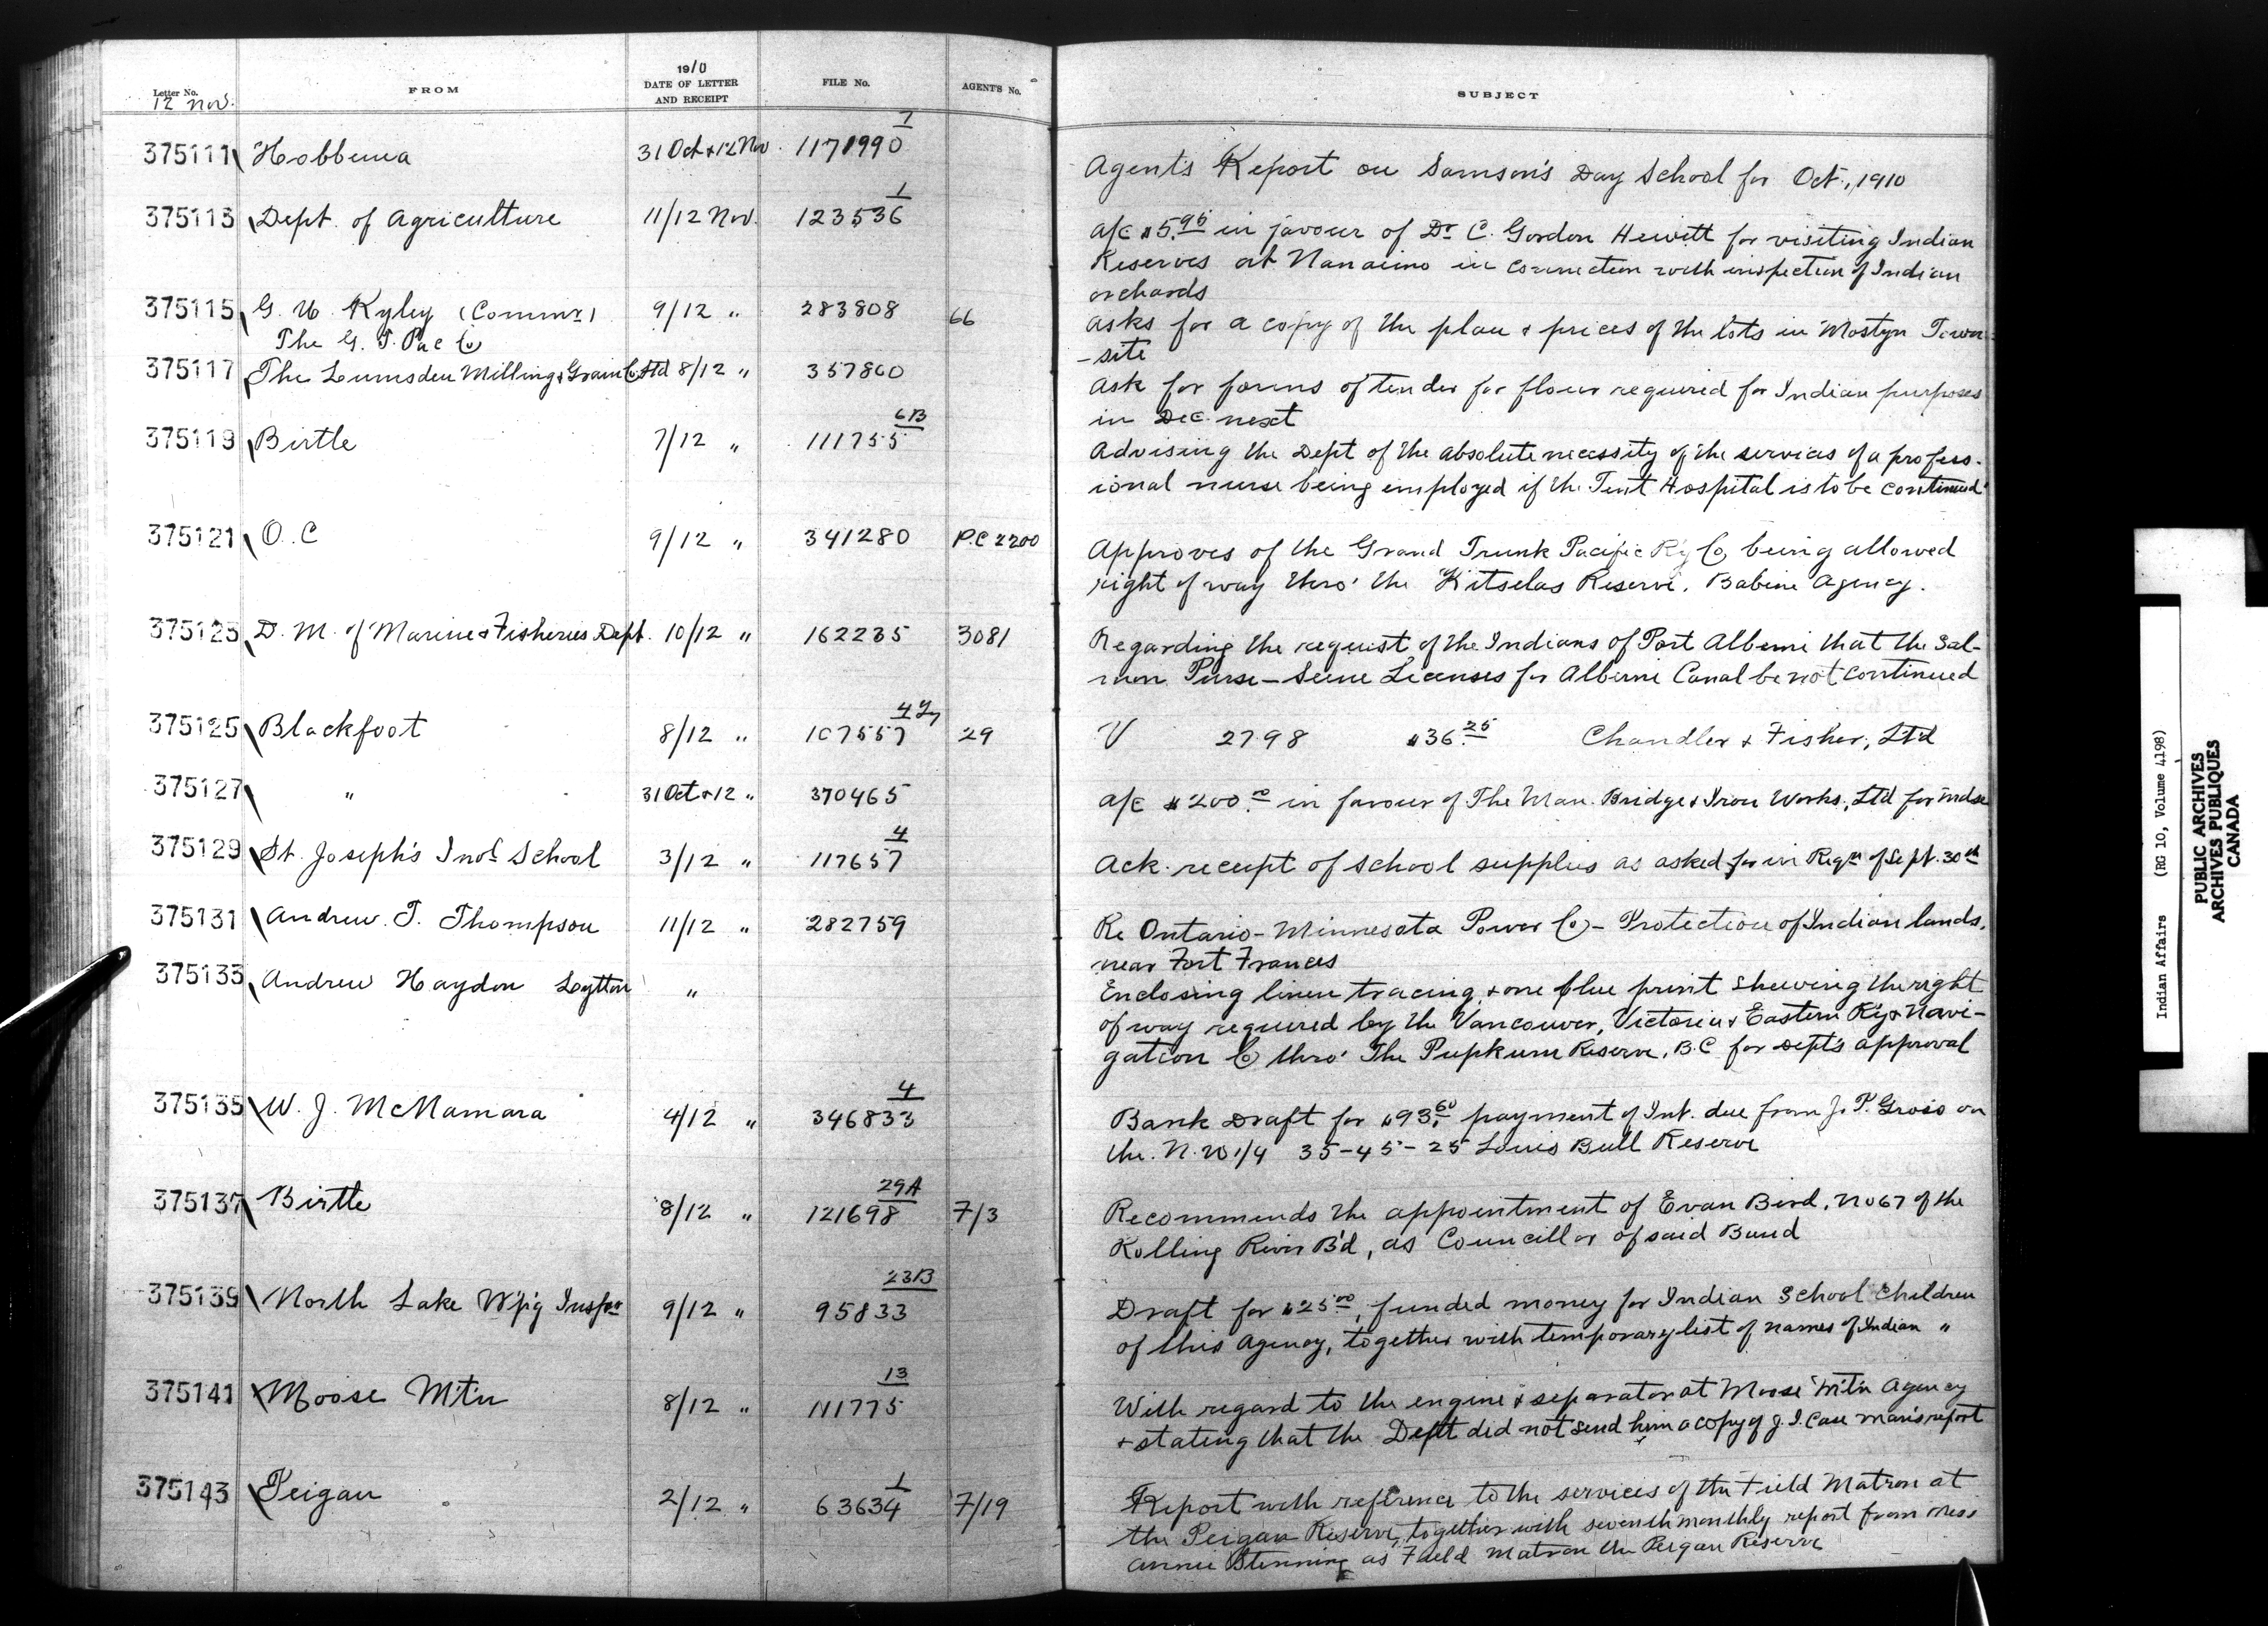 1910
Letter No. FROM DATE OF LETTER AND RECEIPT FILE No. AGENT'S No. SUBJECT
12 Nov.
375111 Hobbema 31 Oct & 12 Nov. 1
Agent's Report on Samson's Day School for Oct., 1910
375113 Dept. of Agriculture 11/12 Nov. 123536 1
a/c $5.95 in favour of Dr C. Gordon Hewitt for visiting Indian
Reserves at Nanaimo in connection with inspection of Indian
orchards
375115 G. U. Ryley (Commr) 9/12 " 283808 66
The G. T. Pac Co
asks for a copy of the plan & prices of the lots in Mostyn Town-
-site
375117 The Lumsden Milling & Grain Co Ltd 8/12 " 357860
Ask for forms of tender for flour required for Indian purposes
in Dec. next
375119 Birtle 7/12 " 111755 6B
Advising the Dept of the absolute necessity of the services of a profess-
ional nurse being employed if the Tent Hospital is to be continued
375121 O.C 9/12 " 341280 P.C 2200
Approves of the Grand Trunk Pacific Ry Co being allowed
right of way thro' the Kitselas Reserve, Babine Agency.
375123 D. M. of Marine & Fisheries Dept. 10/12 " 162235 3081
Regarding the request of the Indians of Port Alberni that the Sal-
mon Purse-Seine Licenses for Alberni Canal be not continued
375125 Blackfoot 8/12 " 107557 29
V 2798 $36.25 Chandler & Fisher, Ltd
375127 " 31 Oct & 12 " 370465
a/c $200.00 in favour of The Man. Bridge & Iron Works, Ltd for mdse
375129 St. Joseph's Indl School 3/12 " 117657 4
Ack. receipt of school supplies as asked for in Reqn of Sept. 30th
375131 Andrew T. Thompson 11/12 " 282759
Re Ontario-Minnesota Power Co - Protection of Indian lands,
near Fort Frances
375133 Andrew Haydon Lytton "
Enclosing linen tracing & one blue print shewing the right
of way required by the Vancouver, Victoria & Eastern Ry & Navi-
gation Co thro' The Pupkum Reserve, B.C for Dept's approval
375135 W. J. McNamara 4/12 " 346833 4
Bank Draft for $93.60 payment of Int. due from J. P. Gross on
the N.W 1/4 35-45-25 Louis Bull Reserve
375137 Birtle 8/12 " 121698 29A 7/3
Recommends the appointment of Evan Bird, No 67 of the
Rolling River B'd, as Councillor of said Band
375139 North Lake W'p'g Inspr 9/12 " 95833 23B
Draft for $25.00, funded money for Indian School Children
of this Agency, together with temporary list of names of Indian "
375141 Moose Mt'n 8/12 " 111775 13
With regard to the engine & separator at Moose Mt'n Agency
& stating that the Dept did not send him a copy of J. I. Case man's report
375143 Peigan 2/12 " 63634 1 7/19
Report with reference to the services of the Field Matron at
the Peigan Reserve, together with seventh monthly report from Miss
Annie Stenning as Field Matron the Peigan Reserve
Indian Affairs (RG 10, Volume 4198)
PUBLIC ARCHIVES
ARCHIVES PUBLIQUES
CANADA